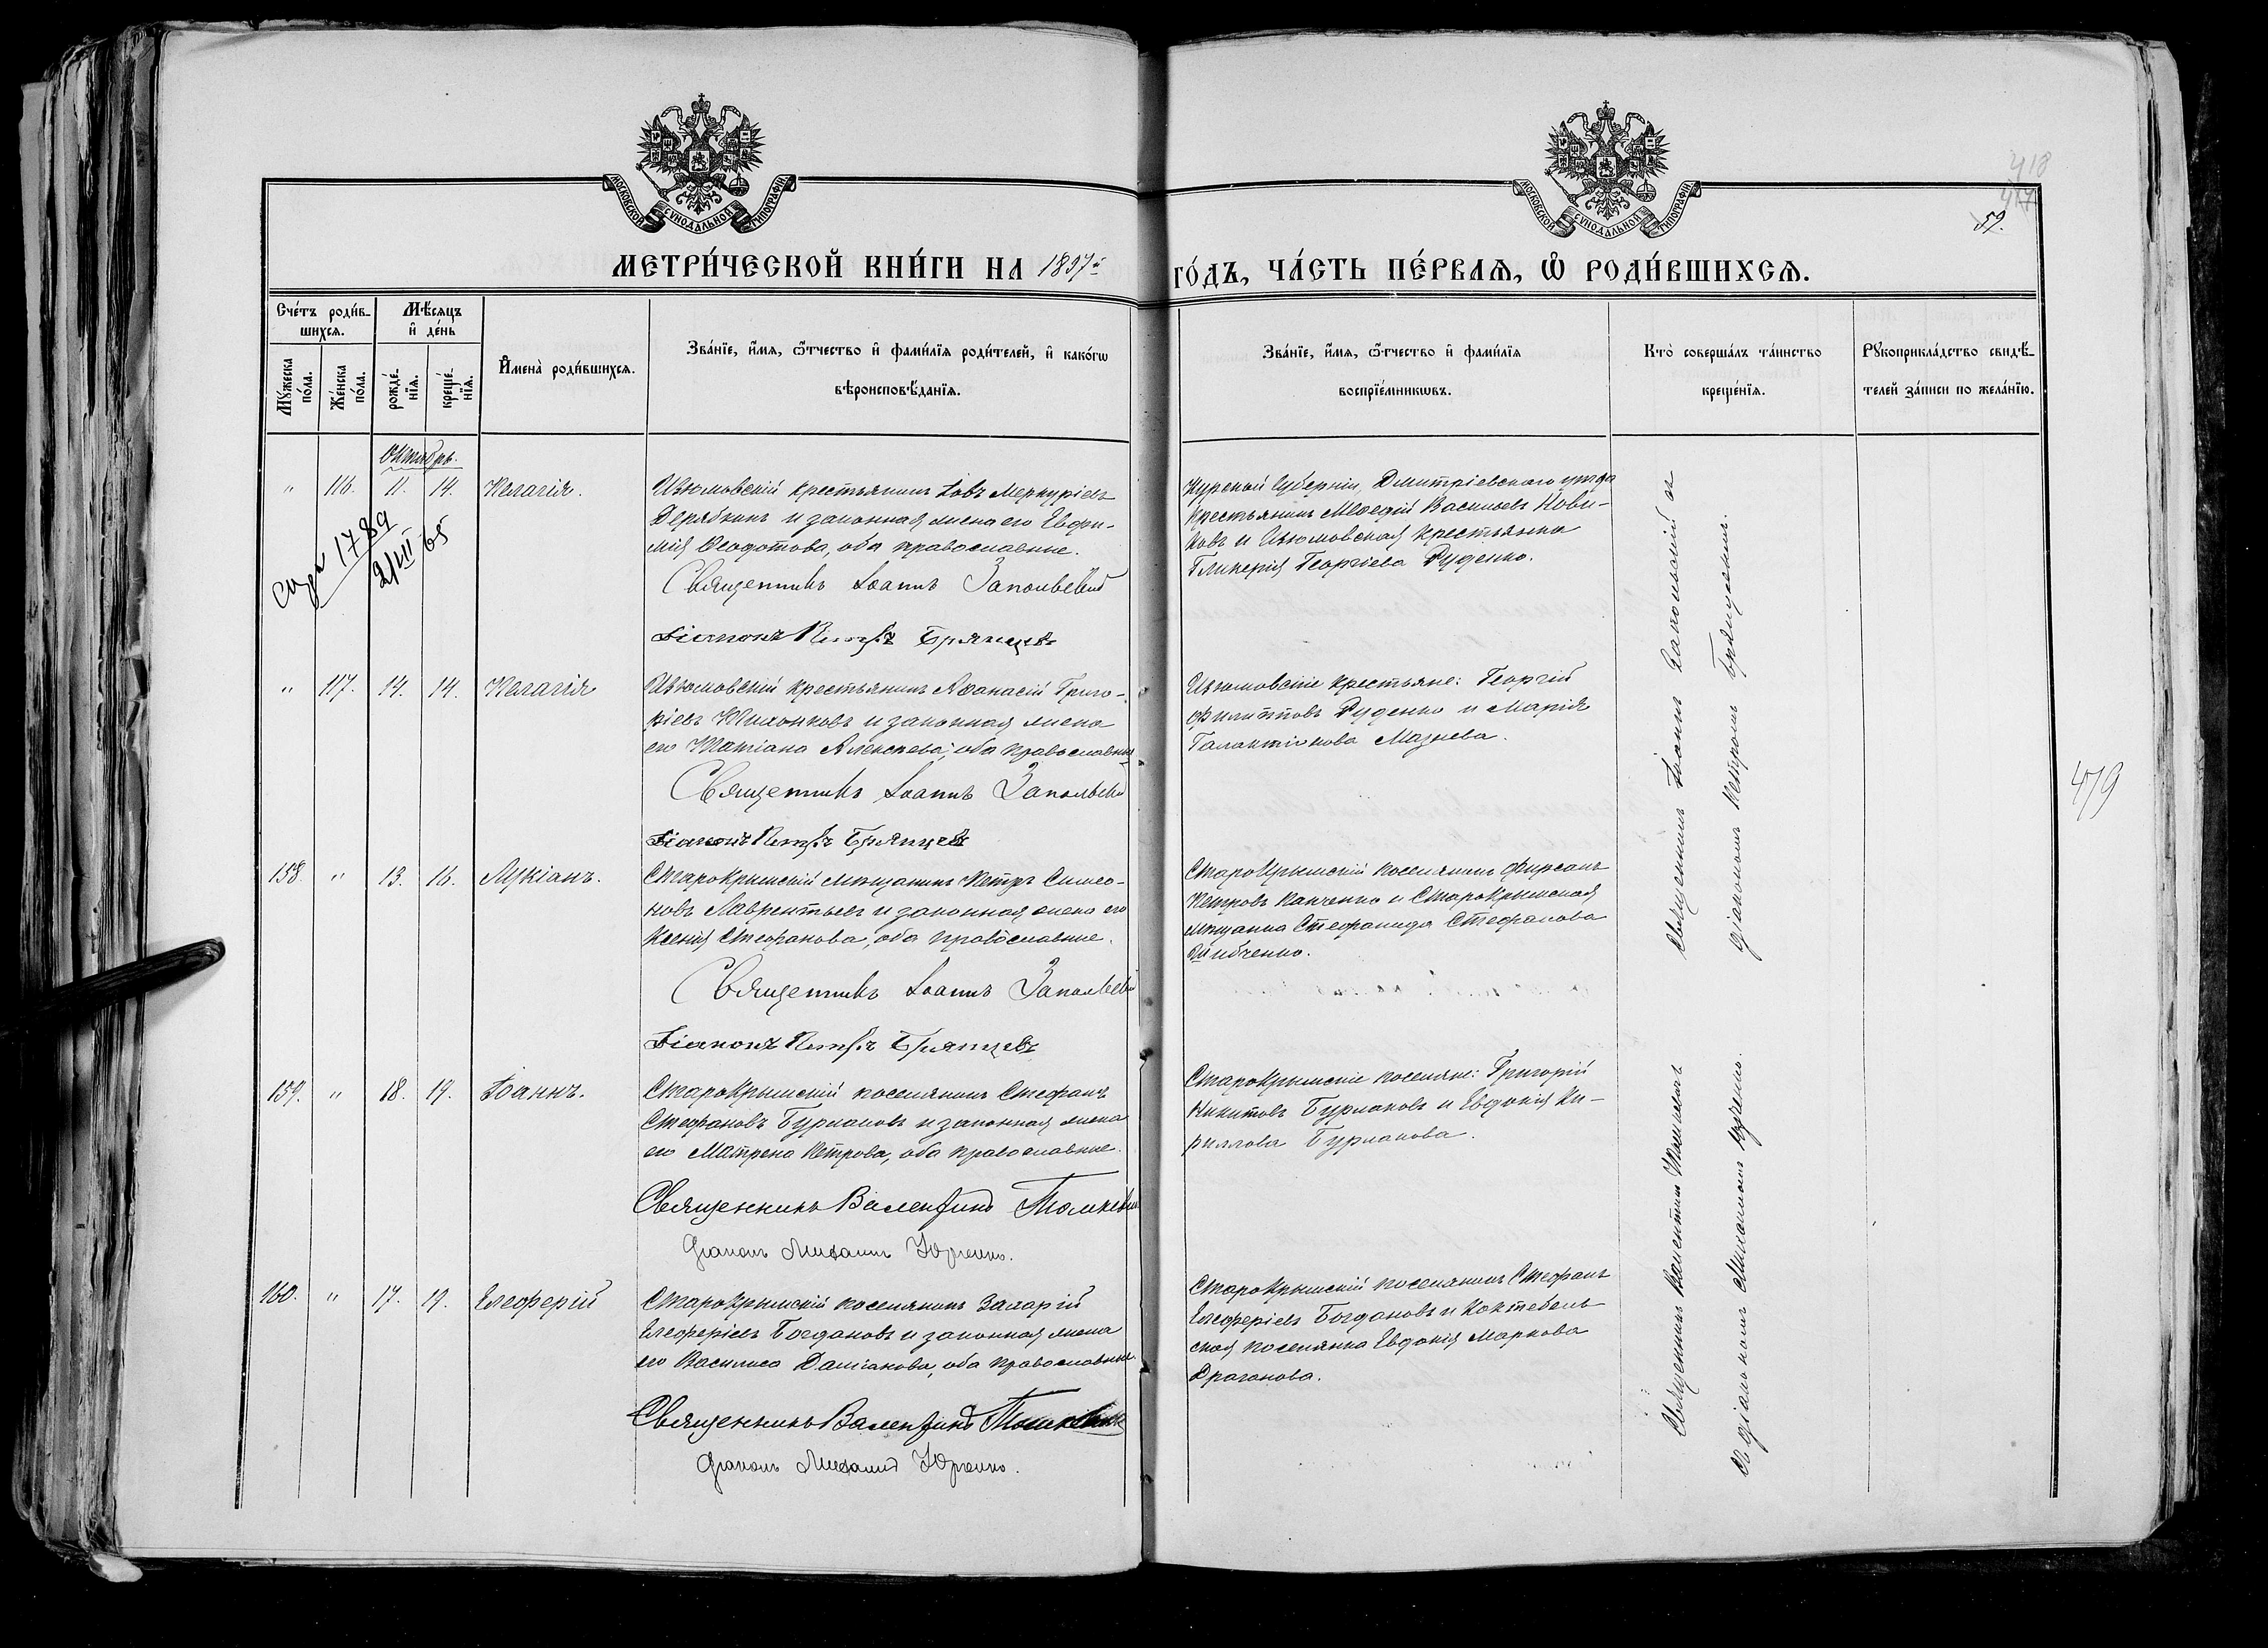 МОСКОВСКОЙ СУНОДАЛЬНОЙ ТИПОГРАФІИ
МОСКОВСКОЙ СУНОДАЛЬНОЙ ТИПОГРАФІИ
418
417
59.
МЕТРИ́ЧЕСКОЙ КНИ́ГИ НА 1897й ГО́ДЪ, ЧА́СТЬ ПЕ́РВАѦ, Ѡ РОДИ́ВШИХСѦ.
Сче́тъ роди́в-
шихсѧ.
Мꙋ́жеска по́ла.
Же́нска по́ла.
Мѣ́сѧцъ
и҆ де́нь
рожде́-
нїѧ.
креще́-
нїѧ.
И҆мена̀ роди́вшихсѧ.
Зва́нїе, и҆́мѧ, ѻ҆́тчество и҆ фами́лїѧ роди́телей, и҆ како́гѡ
вѣроисповѣ́данїѧ.
Зва́нїе, и҆́мѧ, ѻ҆́тчество и҆ фами́лїѧ
воспрїе́мникѡвъ.
Кто̀ соверша́лъ та́инство
креще́нїѧ.
Рꙋкоприкла́дство свидѣ́-
телей за́писи по жела́нїю.
Октябрь.
" 116. 11. 14. Пелагія.
Изюмовскій крестьянинъ Іовъ Меркуріевъ
Дерябкинъ и законная жена его Евфи-
мія Ѳеодотова, оба православные.
Священникъ Іоаннъ Запольскій
Діаконъ Петръ Брянцевъ
Курской Губерніи, Дмитріевскаго уѣзда
крестьянинъ Меѳодій Васильевъ Нови-
ковъ и Изюмовская крестьянка
Гликерія Георгіева Руденко.
1789
2/VII 65
" 117. 14. 14. Пелагія
Изюмовскій крестьянинъ Аѳанасій Григо-
ріевъ Тихонковъ и законная жена
его Татіана Алексѣева, оба православные
Священникъ Іоаннъ Запольскій
Діаконъ Петръ Брянцевъ
Изюмовскіе крестьяне: Георгій
Филипповъ Руденко и Марія
Галактіонова Мазнева.
Священникъ Іоаннъ Запольскій съ
діакономъ Петромъ Брянцевымъ.
479
158. " 13. 16. Лукіанъ.
Старокрымскій мѣщанинъ Петръ Симео-
новъ Лаврентьевъ и законная жена его
Ксенія Стефанова, оба православные.
Священникъ Іоаннъ Запольскій
Діаконъ Петръ Брянцевъ
Старокрымскій поселянинъ Фирсанъ
Петровъ Панченко и Старокрымская
мѣщанка Стефанида Стефанова
Шибченко.
159. " 18. 19. Іоаннъ.
Старокрымскій поселянинъ Стефанъ
Стефановъ Бурлаковъ и законная жена
его Матрена Петрова, оба православные.
Священникъ Валентинъ Томкевичъ
Діаконъ Михаилъ Юрченко.
Старокрымскіе поселяне: Григорій
Никитовъ Бурлаковъ и Евдокія Ки-
риллова Бурлакова.
160. " 17. 19. Елеферій
Старокрымскій поселянинъ Захарій
Елеферіевъ Богдановъ и законная жена
его Василиса Даміанова, оба православные.
Священникъ Валентинъ Томкевичъ
Діаконъ Михаилъ Юрченко.
Старокрымскій поселянинъ Стефанъ
Елеферіевъ Богдановъ и Коктебель-
ская поселянка Евдокія Маркова
Драганова.
Священникъ Валентинъ Томкевичъ
съ діакономъ Михаиломъ Юрченко.